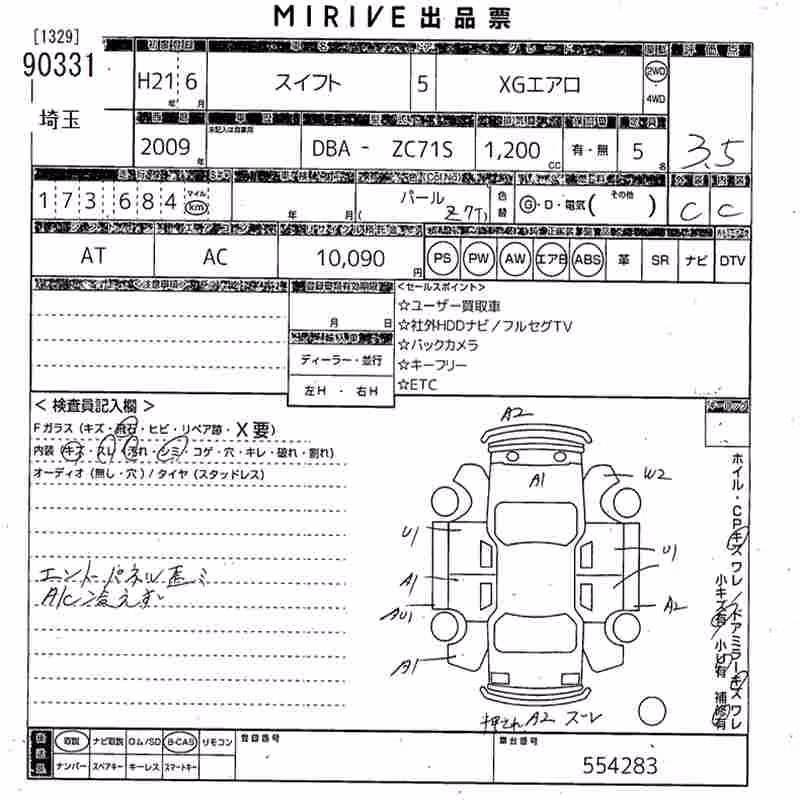 MIRIVE 出品票
[1329]
90331
埼玉
H21 6
年 月
スイフト
5
XGエアロ
2WD
4WD
評価点
3.5
2009
年
DBA - ZC71S
1,200
CC
有・無
5
名
173,684
マイル
km
年 月
パール
( Z7T)
色替
Ⓖ・D・電気( その他 )
C
C
AT
AC
10,090
円
PS
PW
AW
エアB
ABS
革
SR
ナビ
DTV
<セールスポイント>
☆ユーザー買取車
☆社外HDDナビ/フルセグTV
☆バックカメラ
☆キーフリー
☆ETC
月 日
ディーラー・並行
左H ・ 右H
< 検査員記入欄 >
Fガラス (キズ・飛石・ヒビ・リペア跡・X要)
内装 (キズ・スレ・汚れ・シミ・コゲ・穴・キレ・破れ・割れ)
オーディオ (無し・穴) / タイヤ (スタッドレス)
A/C冷えず
A2
A1
W2
U1
U1
A1
AU1
A2
A1
A2
ホイル・CPキズ ワレ / ドアミラーキズ ワレ
小キズ有 / 小U有 補修有
取説
ナビ取説
ロム/SD
B-CAS
リモコン
ナンバー
スペアキー
キーレス
スマートキー
登録番号
車台番号
554283